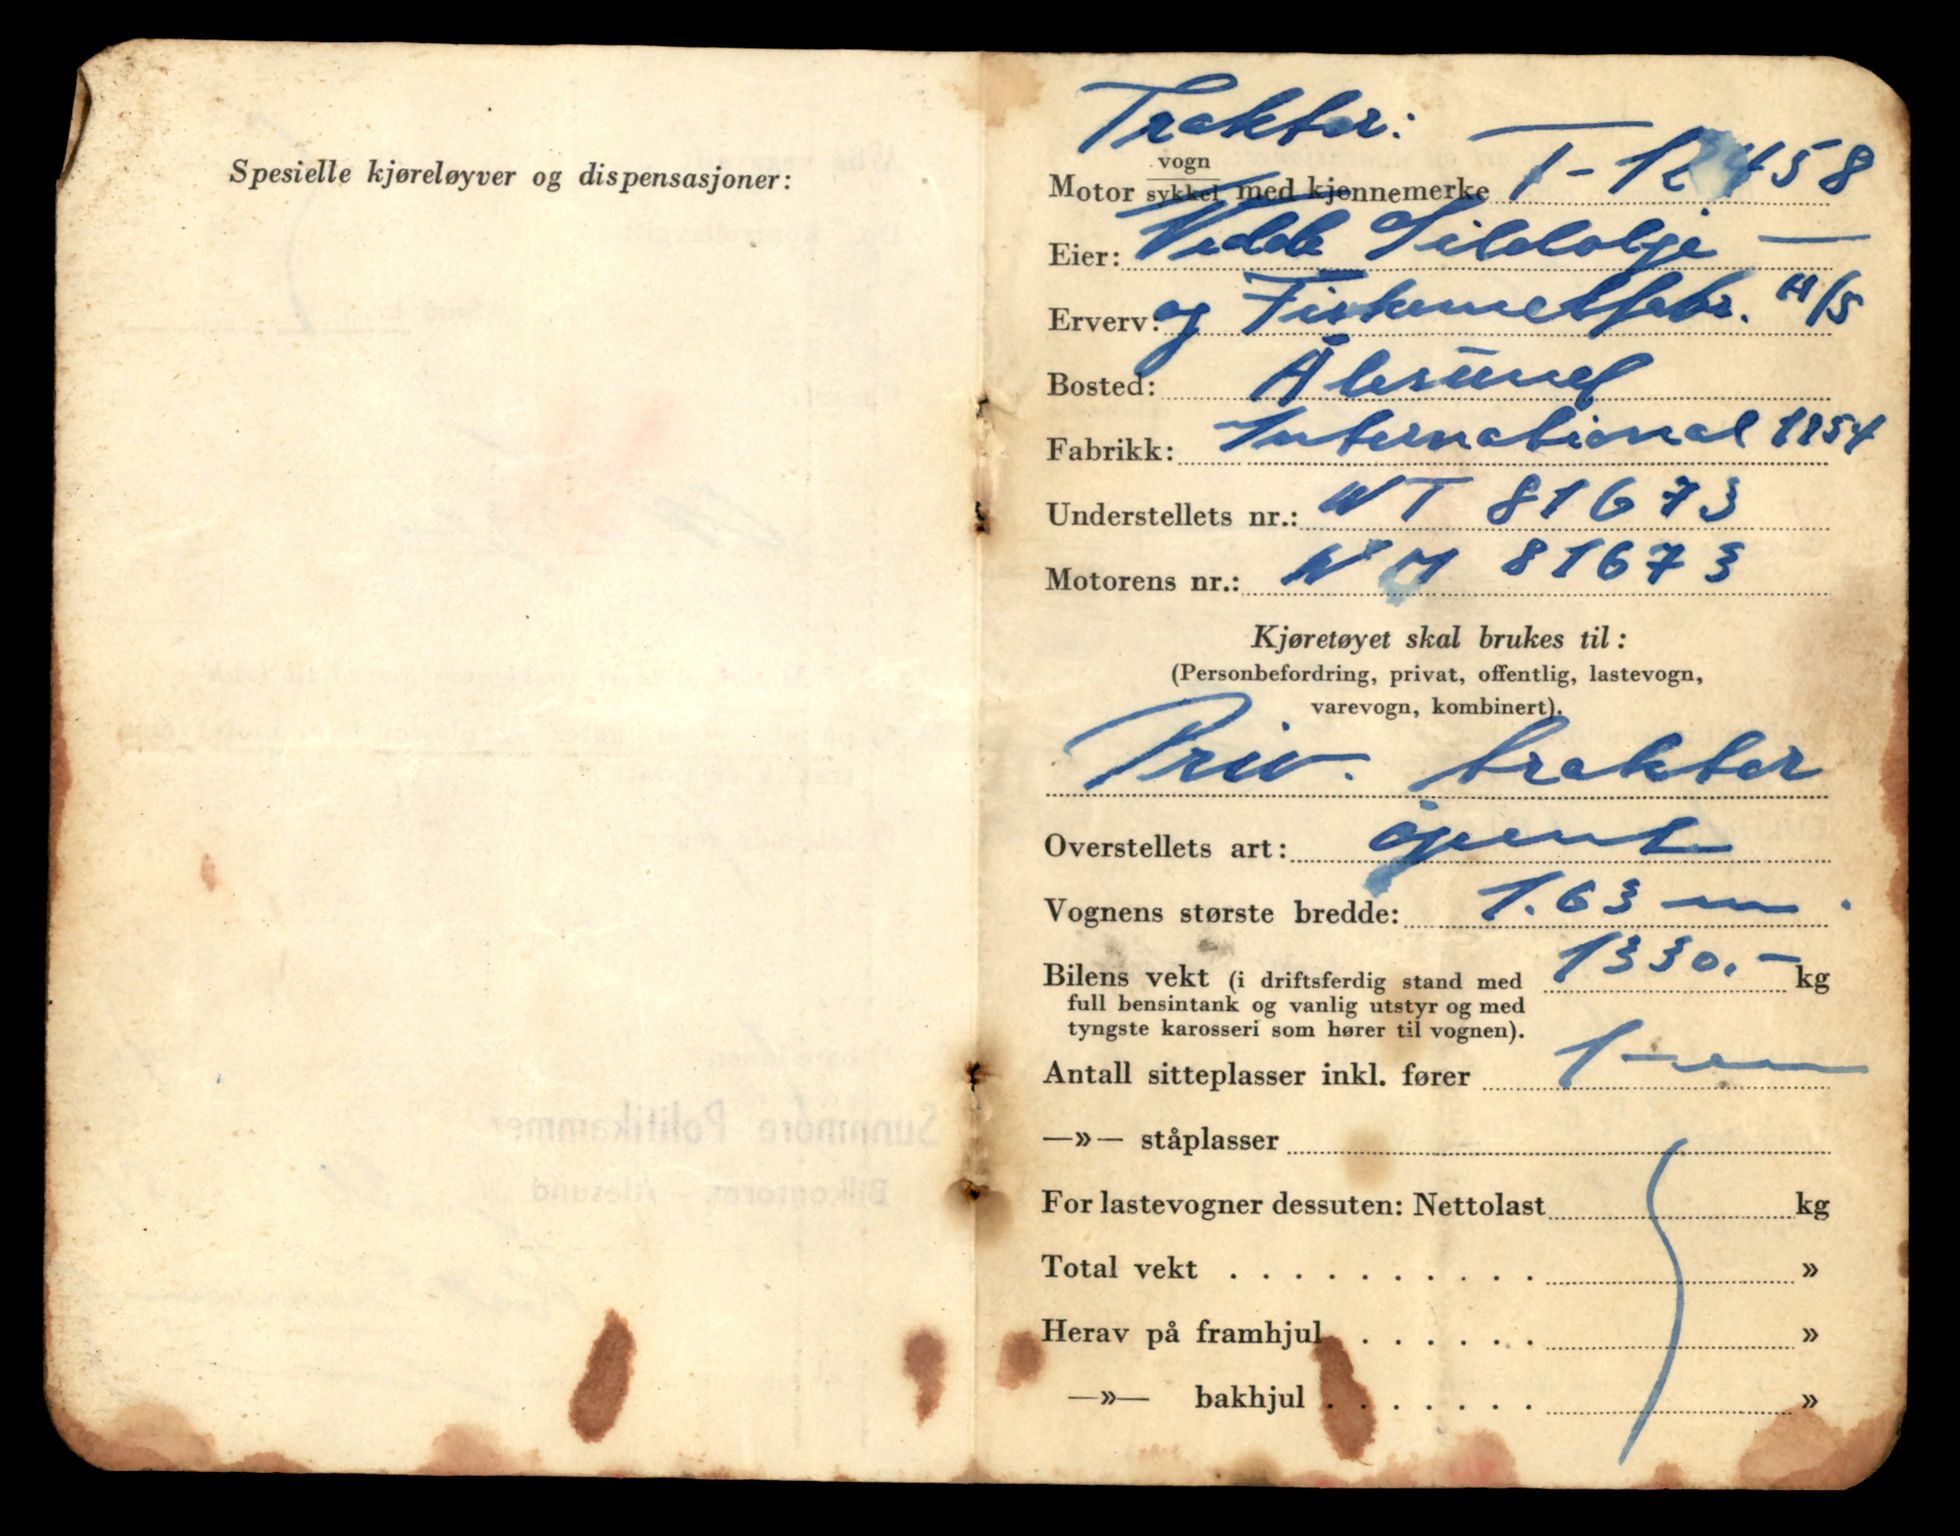 Spesielle kjøreløyver og dispensasjoner:
Traktor:
Motor vogn/sykkel med kjennemerke T-12458
Eier: Vedde Sildolje —
Erverv: og Fiskemelfabr. A/S
Bosted: Ålesund
Fabrikk: International 1954
Understellets nr.: WT 81673
Motorens nr.: WM 81673
Kjøretøyet skal brukes til:
(Personbefordring, privat, offentlig, lastevogn,
varevogn, kombinert).
Priv. traktor
Overstellets art: åpent
Vognens største bredde: 1.63 m.
Bilens vekt (i driftsferdig stand med 1330.- kg
full bensintank og vanlig utstyr og med
tyngste karosseri som hører til vognen).
Antall sitteplasser inkl. fører 1-en
—»— ståplasser
For lastevogner dessuten: Nettolast kg
Total vekt . . . . . . . . . . »
Herav på framhjul . . . . . . »
—»— bakhjul . . . . . . . »